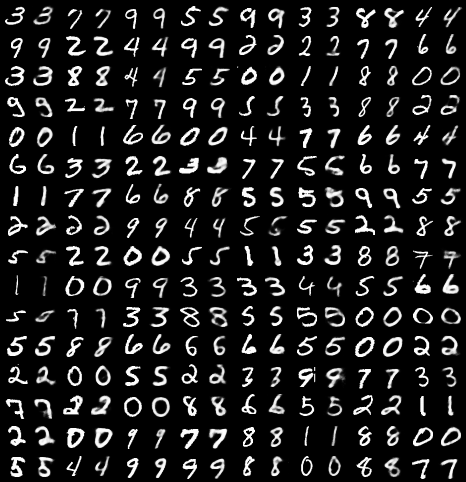 3 3 7 7 9 9 5 5 9 9 3 3 8 8 4 4
9 9 2 2 4 4 9 9 2 2 2 2 7 7 6 6
3 3 8 8 4 4 5 5 0 0 1 1 8 8 0 0
9 9 2 2 7 7 9 9 5 5 3 3 8 8 2 2
0 0 1 1 6 6 0 0 4 4 7 7 6 6 4 4
6 6 3 3 2 2 3 3 7 7 5 5 6 6 7 7
1 1 7 7 6 6 8 8 5 5 5 5 9 9 5 5
2 2 2 2 9 9 4 4 5 5 5 5 2 2 8 8
5 5 2 2 0 0 5 5 1 1 3 3 8 8 7 7
1 1 0 0 9 9 3 3 3 3 4 4 5 5 6 6
5 5 7 7 3 3 8 8 5 5 5 5 0 0 0 0
5 5 8 8 6 6 6 6 6 6 5 5 0 0 2 2
2 2 0 0 5 5 2 2 3 3 9 9 7 7 3 3
7 7 2 2 0 0 8 8 6 6 5 5 2 2 1 1
2 2 0 0 9 9 7 7 8 8 1 1 8 8 0 0
5 5 4 4 9 9 9 9 8 8 0 0 8 8 7 7